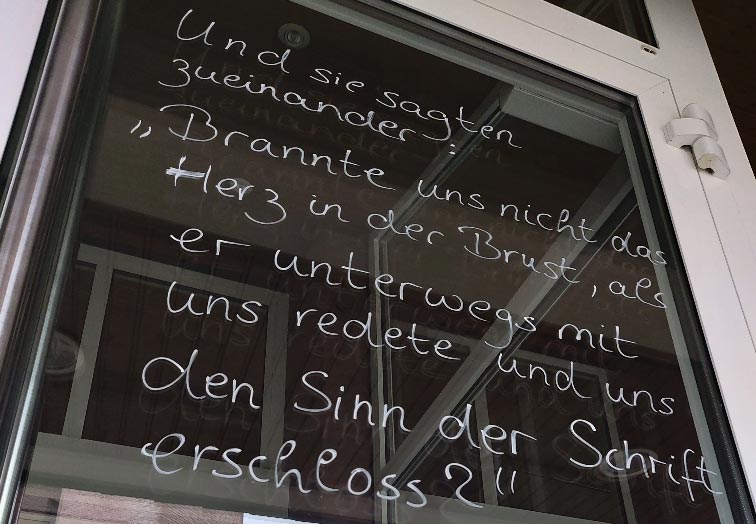 Und sie sagten
zueinander:
„Brannte uns nicht das
Herz in der Brust, als
er unterwegs mit
uns redete und uns
den Sinn der Schrift
erschloss?"